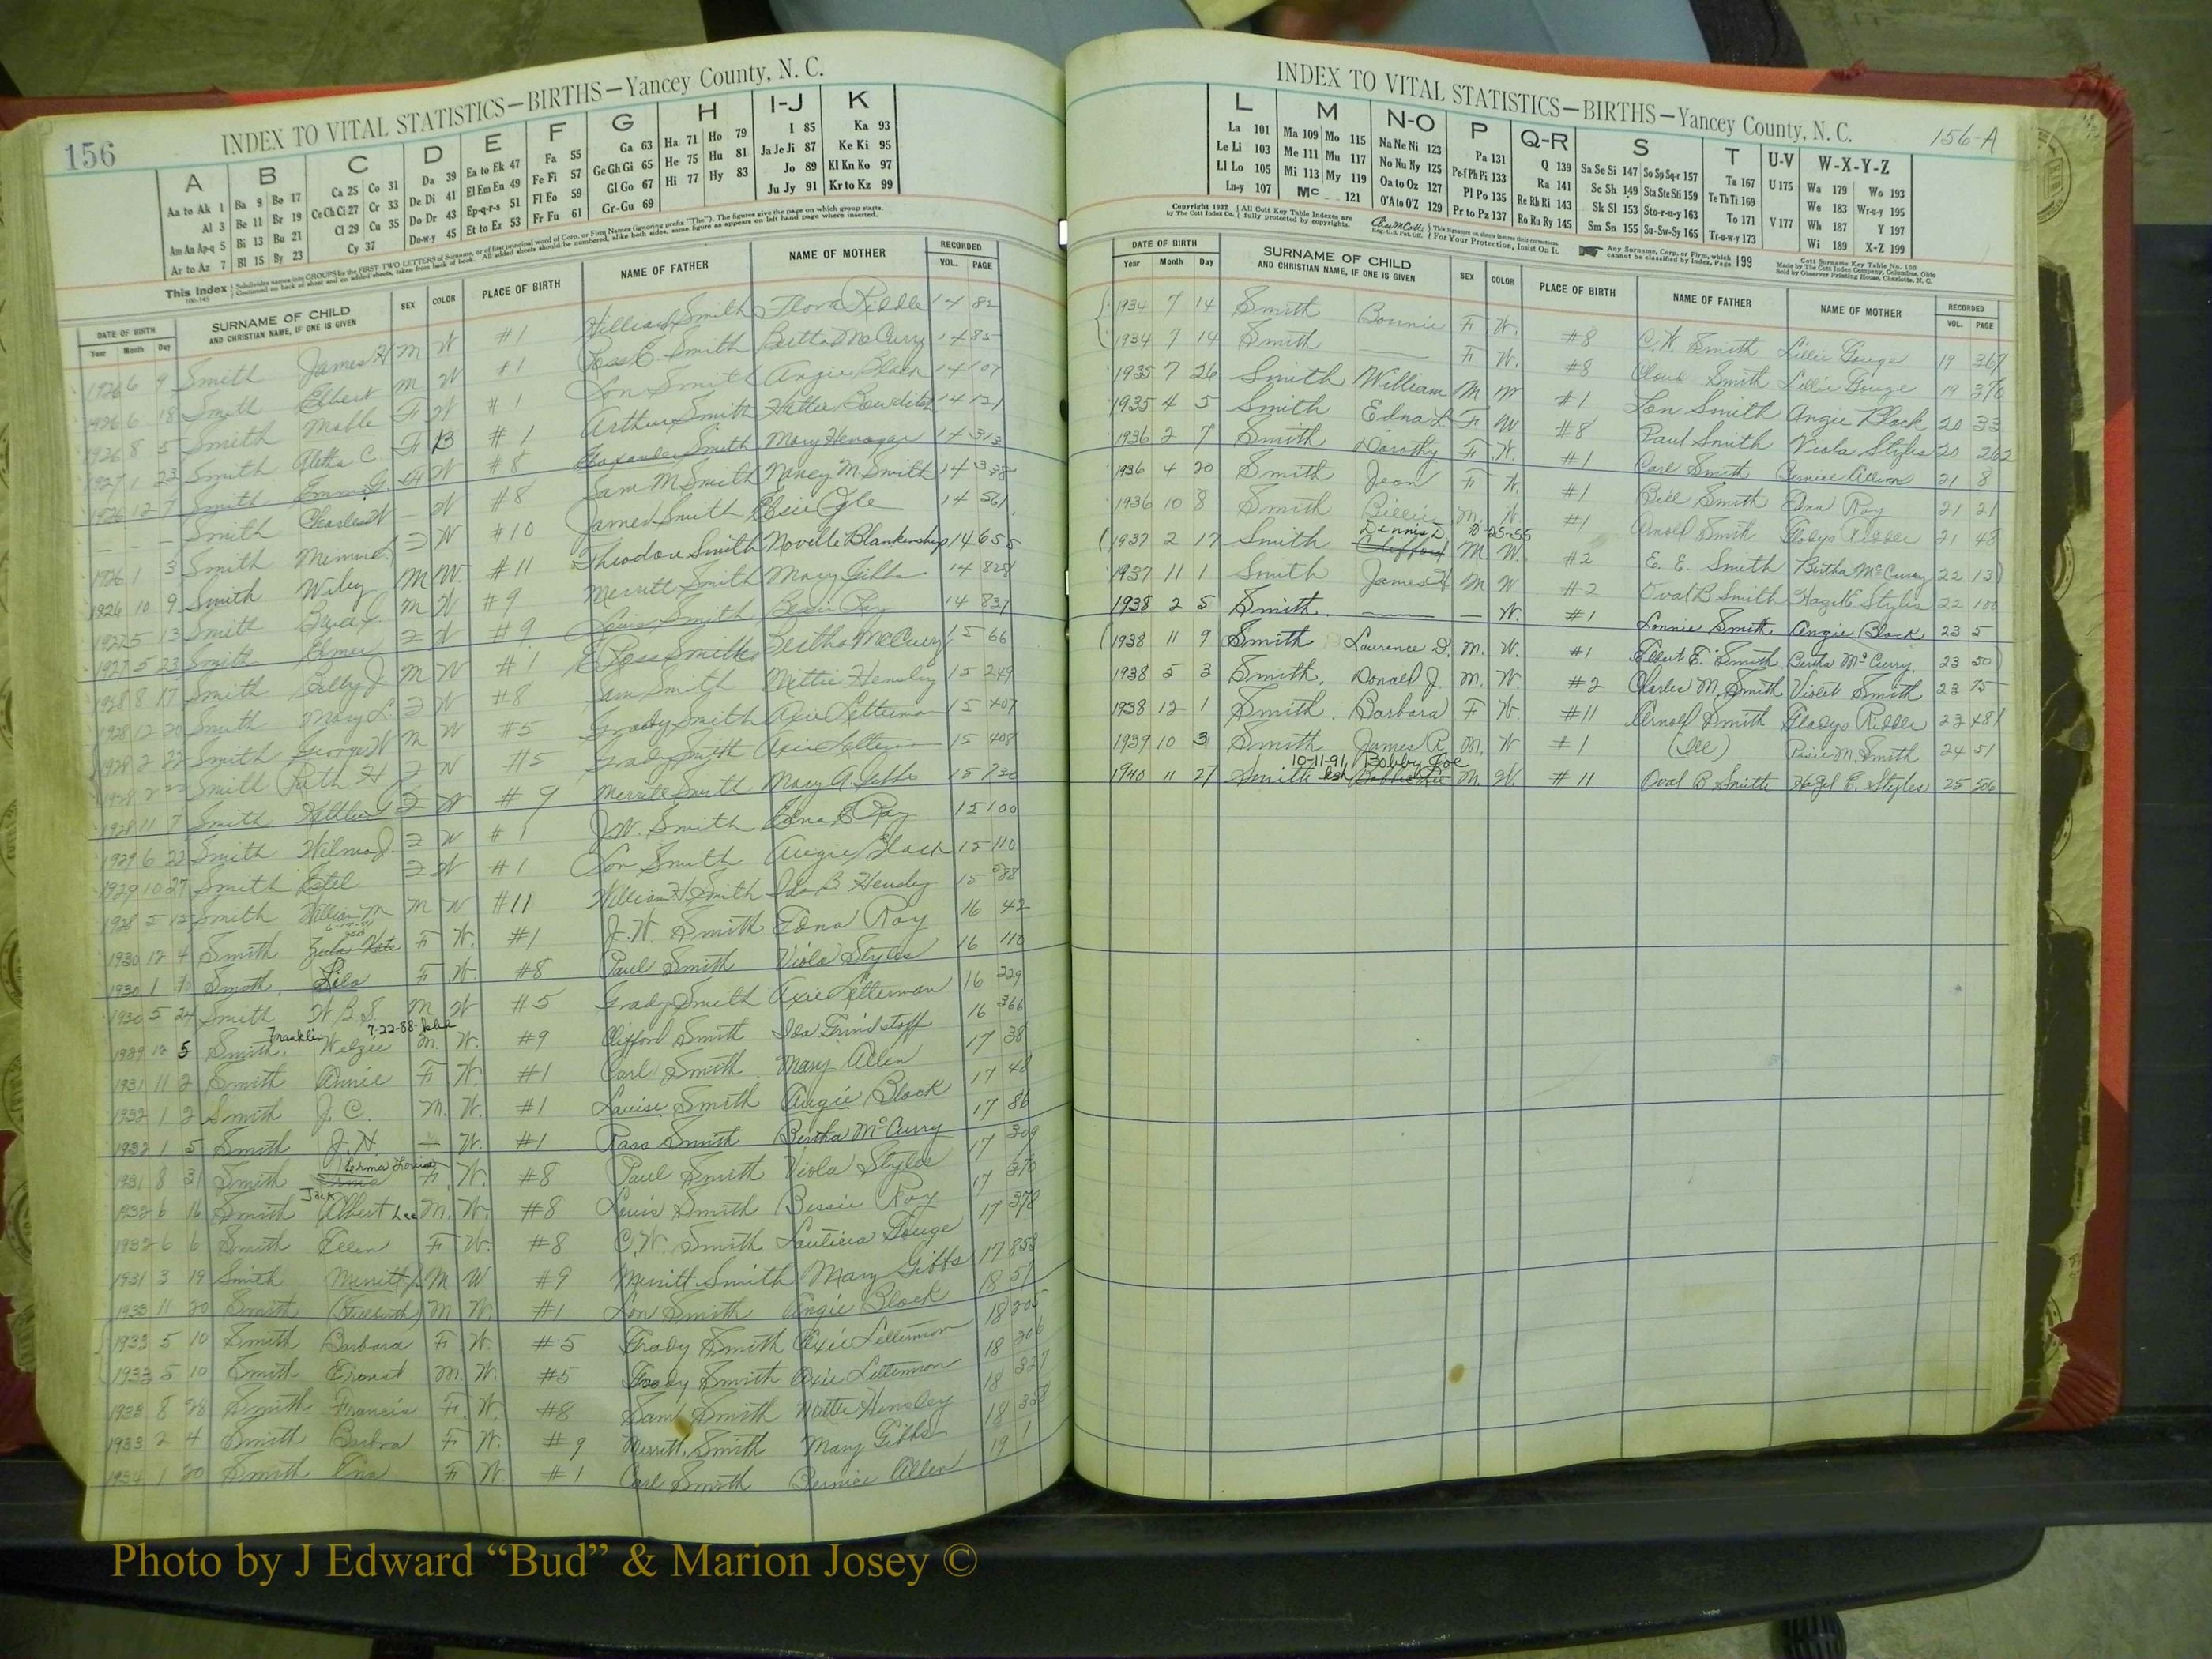 156
INDEX TO VITAL STATISTICS—BIRTHS—Yancey County, N. C.
A B C D E F G H I-J K
Aa to Ak 1 Ba 9 Bo 17 Ca 25 Co 31 Da 39 Ea to Ek 47 Fa 55 Ga 63 Ha 71 Ho 79 I 85 Ka 93
Al 3 Be 11 Br 19 Ce Ch Ci 27 Cr 33 De Di 41 El Em En 49 Fe Fi 57 Ge Gh Gi 65 He 75 Hu 81 Ja Je Ji 87 Ke Ki 95
Am An Ap-q 5 Bi 13 Bu 21 Cl 29 Cu 35 Do Dr 43 Ep-q-r-s 51 Fl Fo 59 Gl Go 67 Hi 77 Hy 83 Jo 89 Kl Kn Ko 97
Ar to Az 7 Bl 15 By 23 Cy 37 Du-w-y 45 Et to Ez 53 Fr Fu 61 Gr-Gu 69 Ju Jy 91 Kr to Kz 99
DATE OF BIRTH SURNAME OF CHILD AND CHRISTIAN NAME, IF ONE IS GIVEN SEX COLOR PLACE OF BIRTH NAME OF FATHER NAME OF MOTHER RECORDED
Year Month Day VOL. PAGE
1926 6 9 Smith James H M W #1 William Smith Flora Riddle 14 82
1926 6 18 Smith Elbert M W #1 Ross E. Smith Bertha McCurry 14 85
1926 8 5 Smith Mable F W #1 Lon Smith Angie Black 14 107
1927 1 23 Smith Aletha C. F B #1 Arthur Smith Hattie 14 121
1926 12 7 Smith Emma G. W #8 Smith Mary 14 313
— — — Smith Charles W — W #8 Sam M Smith Nancy M. Smith 14 338
1926 1 3 Smith F W #10 James Smith Elsie Ogle 14 561
1926 10 9 Smith Wiley M W. #11 Theodore Smith Novelle Blankenship 14 655
1927 5 13 Smith M W #9 Merritt Smith Mary Gibbs 14 828
1927 5 23 Smith Elmer F W #9 Louis Smith Bessie Ray 14 837
1928 8 17 Smith Billy J M W #1 E Ross Smith Bertha McCurry 15 66
1928 12 20 Smith Mary L. F W #8 Sam Smith Mittie Hensley 15 249
1928 2 22 Smith George W M W #5 Grady Smith Axie Letterman 15 407
1928 2 22 Smith Ruth H F W #5 Grady Smith Axie Letterman 15 408
1928 11 7 Smith F W #9 Merritt Smith Mary A. Gibbs 15 730
1929 6 22 Smith Wilma J. F W #1 J.W. Smith Edna E Ray 15 100
1929 10 27 Smith Estel F W #1 Lon Smith Angie Black 15 110
1928 5 12 Smith William M M W #11 William H. Smith Ida B. Hensley 15 988
1930 12 4 Smith Kate F W. #1 J. W. Smith Edna Ray 16 42
1930 1 Smith Lila F W. #8 Paul Smith Viola Styles 16 110
1930 5 24 Smith W. B. S. M W #5 Grady Smith Axie Letterman 16 229
Franklin 7-22-88
1929 12 5 Smith, Welzie M. W. #9 Clifford Smith Ida Grindstaff 16 366
1931 11 2 Smith Annie F W. #1 Carl Smith Mary Allen 17 38
1932 1 2 Smith J. C. M. W. #1 Louise Smith Angie Black 17 48
1932 1 5 Smith J. H — W. #1 Ross Smith Bertha McCurry 17 86
1931 8 31 Smith Lerma Louise F. W. #8 Paul Smith Viola Styles 17 309
Jack
1932 6 16 Smith Albert Lee M. W. #8 Louis Smith Bessie Ray 17 370
1932 6 6 Smith Ellen F W. #8 C. W. Smith Gouge 17 378
1931 3 19 Smith Merritt Jr M W #9 Merritt Smith Mary Gibbs 17 853
1933 11 20 Smith M W. #1 Lon Smith Angie Black 18 51
1933 5 10 Smith Barbara F. W. #5 Grady Smith Axie Letterman 18 205
1933 5 10 Smith Ernest M. W. #5 Grady Smith Axie Letterman 18 206
1933 8 28 Smith Francis F. W. #8 Sam Smith Mittie Hensley 18 327
1933 2 4 Smith Barbra F W. #9 Merritt Smith Mary Gibbs 18 358
1934 1 20 Smith F W. #1 Carl Smith Bernice Allen 19 1
INDEX TO VITAL STATISTICS—BIRTHS—Yancey County, N. C.
156-A
L M N-O P Q-R S T U-V W-X-Y-Z
La 101 Ma 109 Mo 115 Na Ne Ni 123 Pa 131 Q 139 Sa Se Si 147 So Sp Sq-r 157 Ta 167 U 175 Wa 179 Wo 193
Le Li 103 Me 111 Mu 117 No Nu Ny 125 Pe-f Ph Pi 133 Ra 141 Sc Sh 149 Sta Ste Sti 159 Te Th Ti 169 We 183 Wr-u-y 195
Ll Lo 105 Mi 113 My 119 Oa to Oz 127 Pl Po 135 Re Rh Ri 143 Sk Sl 153 Sto-r-u-y 163 To 171 V 177 Wh 187 Y 197
Lu-y 107 Mc 121 O'A to O'Z 129 Pr to Pz 137 Ro Ru Ry 145 Sm Sn 155 Su-Sw-Sy 165 Tr-u-w-y 173 Wi 189 X-Z 199
DATE OF BIRTH SURNAME OF CHILD AND CHRISTIAN NAME, IF ONE IS GIVEN SEX COLOR PLACE OF BIRTH NAME OF FATHER NAME OF MOTHER RECORDED
Year Month Day VOL. PAGE
1934 7 14 Smith Bonnie F W. #8 C. W. Smith Lillie Gouge 19 367
1934 7 14 Smith — F W. #8 Smith Lillie Gouge 19 376
1935 7 26 Smith William M W #1 Lon Smith Angie Black 20 33
1935 4 5 Smith Edna L. F W #8 Paul Smith Viola Styles 20 262
1936 2 7 Smith Dorothy F. W. #1 Carl Smith Bernice Allison 21 8
1936 4 20 Smith Jean F W. #1 Bill Smith Edna Ray 21 21
1936 10 8 Smith Billie M. W. #1 Arnold Smith Gladys Riddle 21 48
Dennis D. 10-25-55
1937 2 17 Smith Clifford M W. #2 E. E. Smith Bertha McCurry 22 13
1937 11 1 Smith James H M W #2 Oval B Smith Hazel E Styles 22 100
1938 2 5 Smith. — — W. #1 Lonnie Smith Angie Black 23 5
1938 11 9 Smith Laurance D. M. W. #1 Elbert E. Smith Bertha McCurry. 23 50
1938 5 3 Smith. Donald J. M. W. #2 Charles M. Smith Violet Smith 23 75
1938 12 1 Smith. Barbara F W. #11 Arnold Smith Gladys Riddle 23 481
1939 10 3 Smith James R. M. W #1 (Ill) Rosie M. Smith 24 51
10-11-91 Bobby Joe
1940 11 27 Smith Bobbie Lee M. W. #11 Oval B Smith Hazel E. Styles 25 506
Photo by J Edward “Bud” & Marion Josey ©